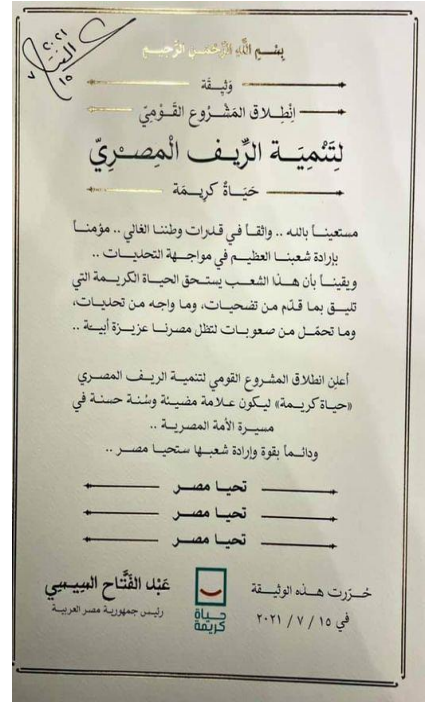 بِسْمِ اللَّهِ الرَّحْمَٰنِ الرَّحِيمِ
٢٠٢١
١٥
٧
وَثِيقَة
انْطِلَاق المَشْرُوع القَوْمِيّ
لِتَنْمِيَـة الرِّيف الْمِصـْرِيّ
حَيَاةُ كَرِيمَة
مستعيناً بالله .. واثقاً في قدرات وطننا الغالي .. مؤمناً
بإرادة شعبنا العظيم في مواجهة التحديات ..
ويقيناً بأن هذا الشعب يستحق الحياة الكريمة التي
تليق بما قدّم من تضحيات، وما واجه من تحديات،
وما تحمّل من صعوبات لتظل مصرنا عزيزة أبيّة ..
أعلن انطلاق المشروع القومي لتنمية الريف المصري
«حياة كريمة» ليكون علامة مضيئة وسُنة حسنة في
مسيرة الأمة المصرية ..
ودائماً بقوة وإرادة شعبها ستحيا مصر ..
تحيا مصر
تحيا مصر
تحيا مصر
حُرّرت هذه الوثيقة
في ١٥ / ٧ / ٢٠٢١
حياة
كريمة
عَبْد الفَتَّاح السِيسِي
رئيس جمهورية مصر العربية